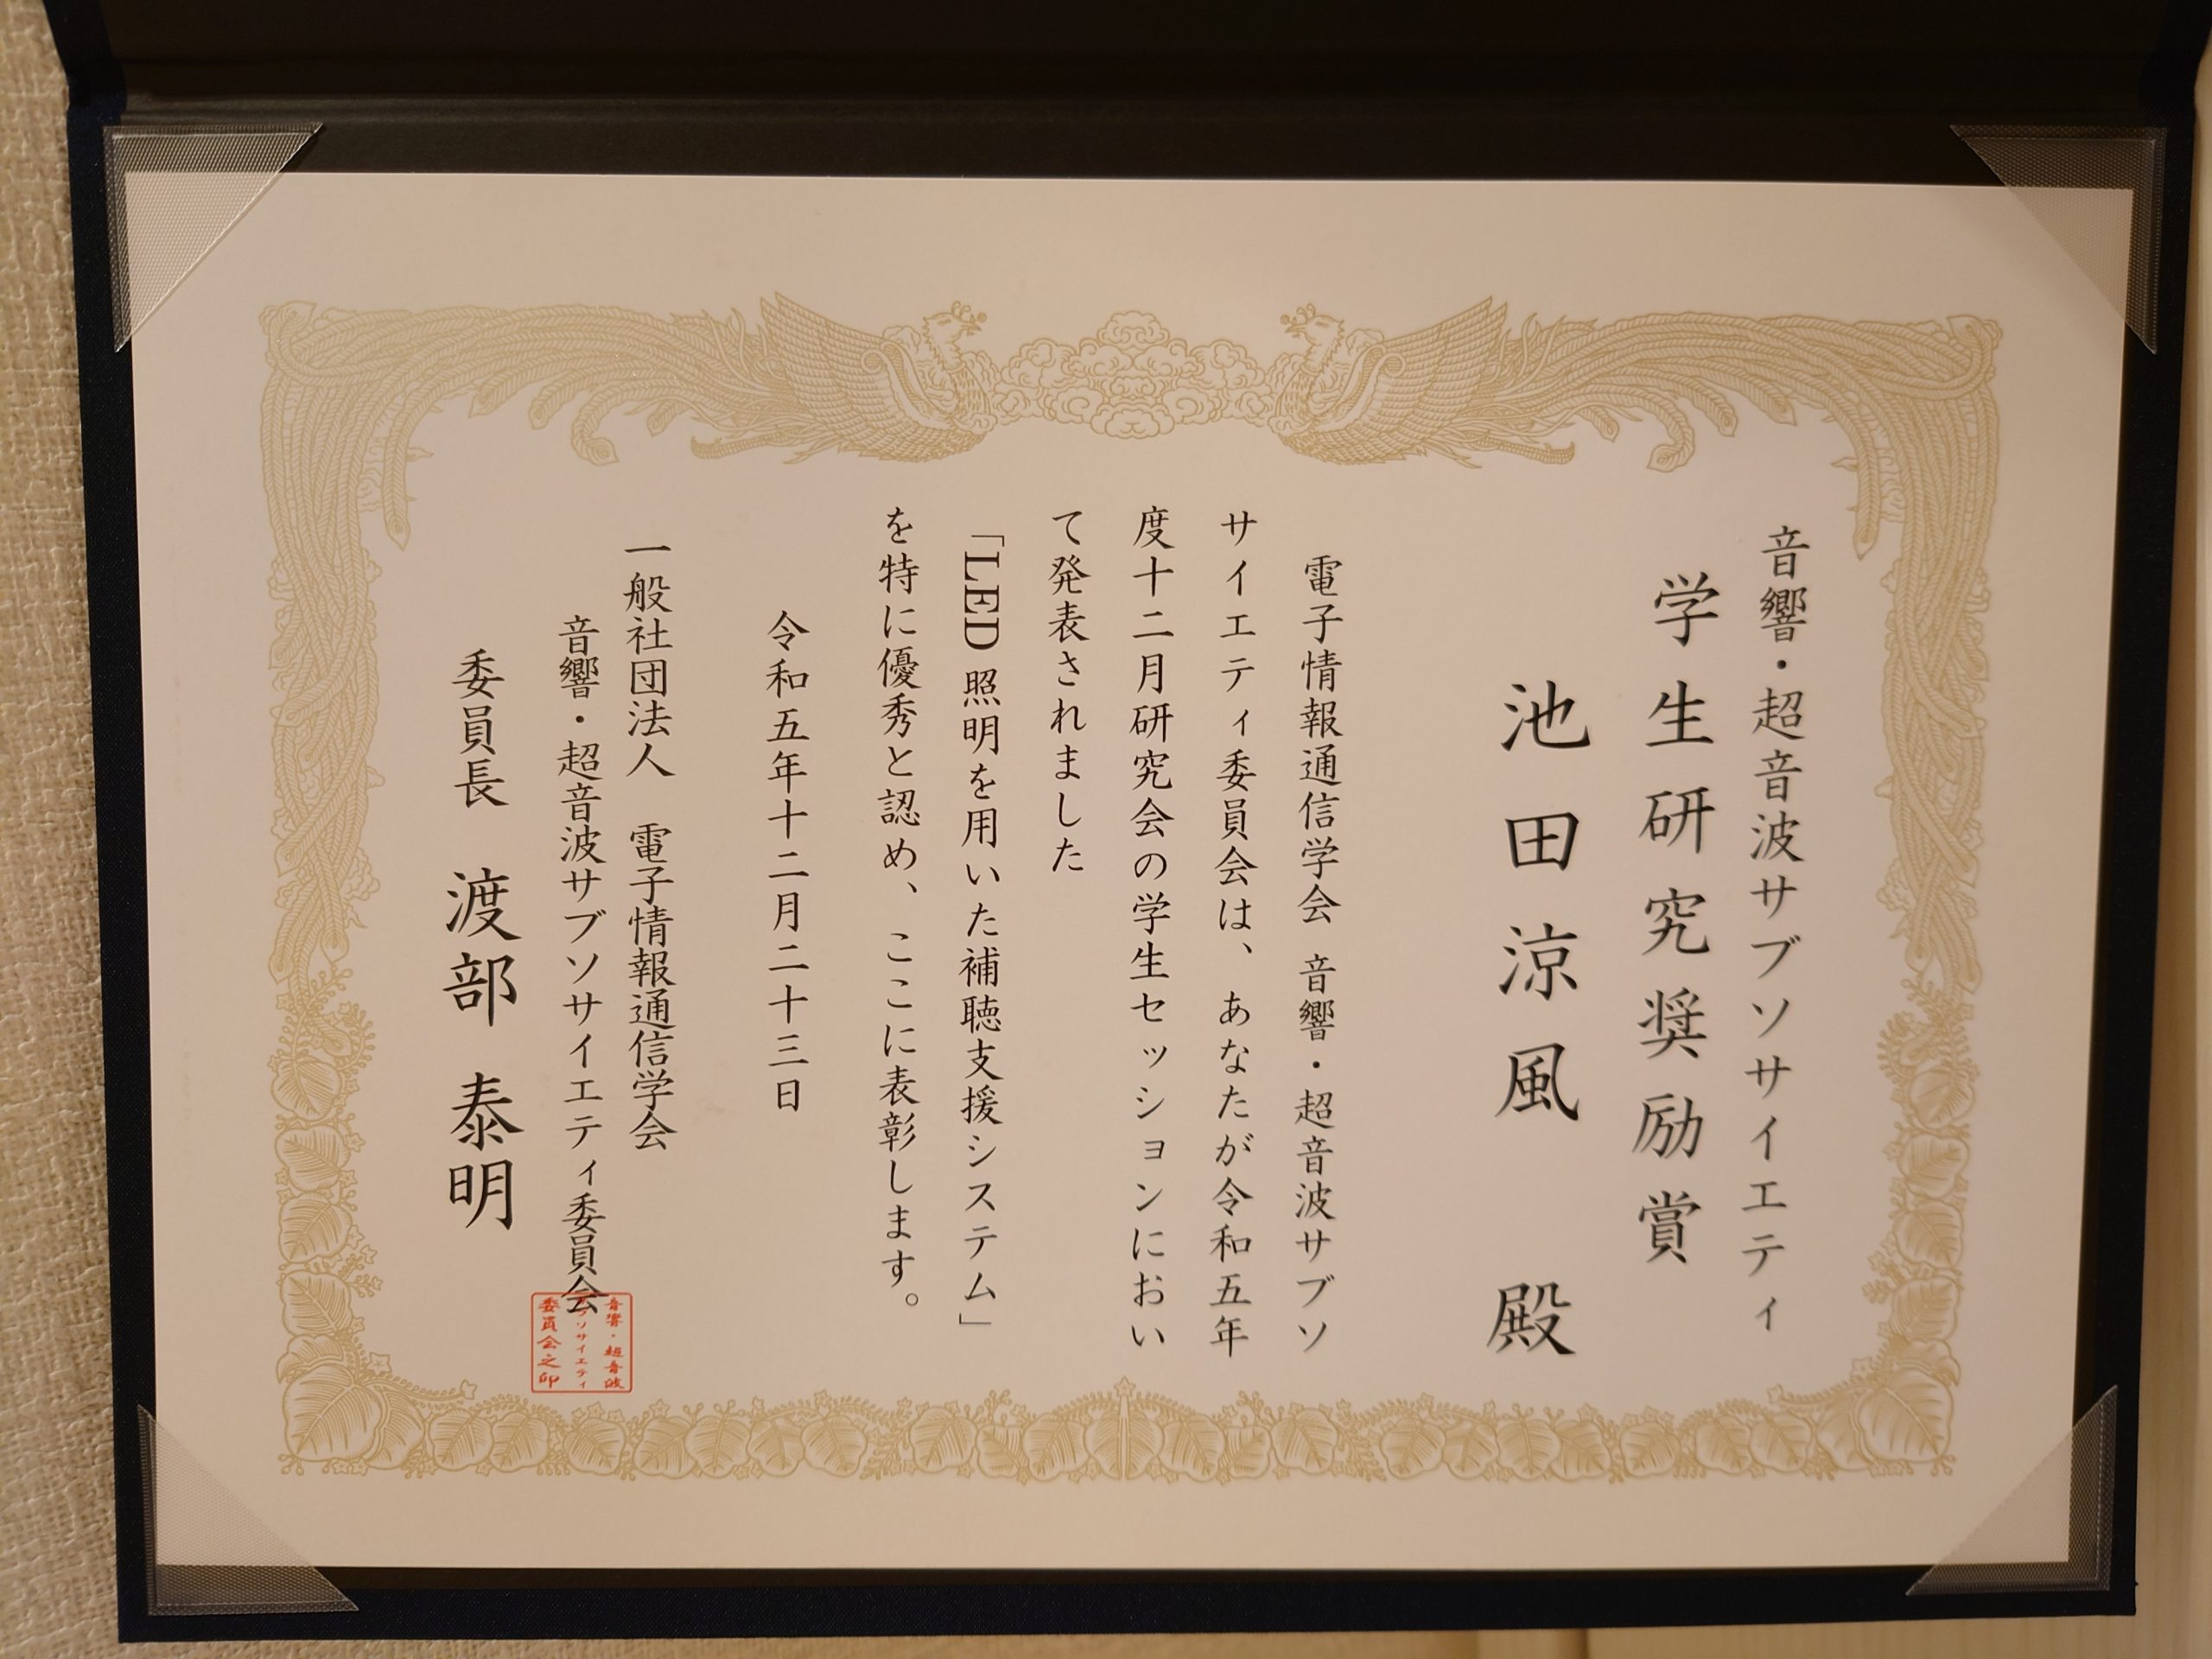 音響・超音波サブソサイエティ
学生研究奨励賞
池田涼風 殿
電子情報通信学会 音響・超音波サブソ
サイエティ委員会は、あなたが令和五年
度十二月研究会の学生セッションにおい
て発表されました
「LED 照明を用いた補聴支援システム」
を特に優秀と認め、ここに表彰します。
令和五年十二月二十三日
一般社団法人 電子情報通信学会
音響・超音波サブソサイエティ委員会
委員長 渡部 泰明
音響・超音波
サブソサイエティ
委員会之印